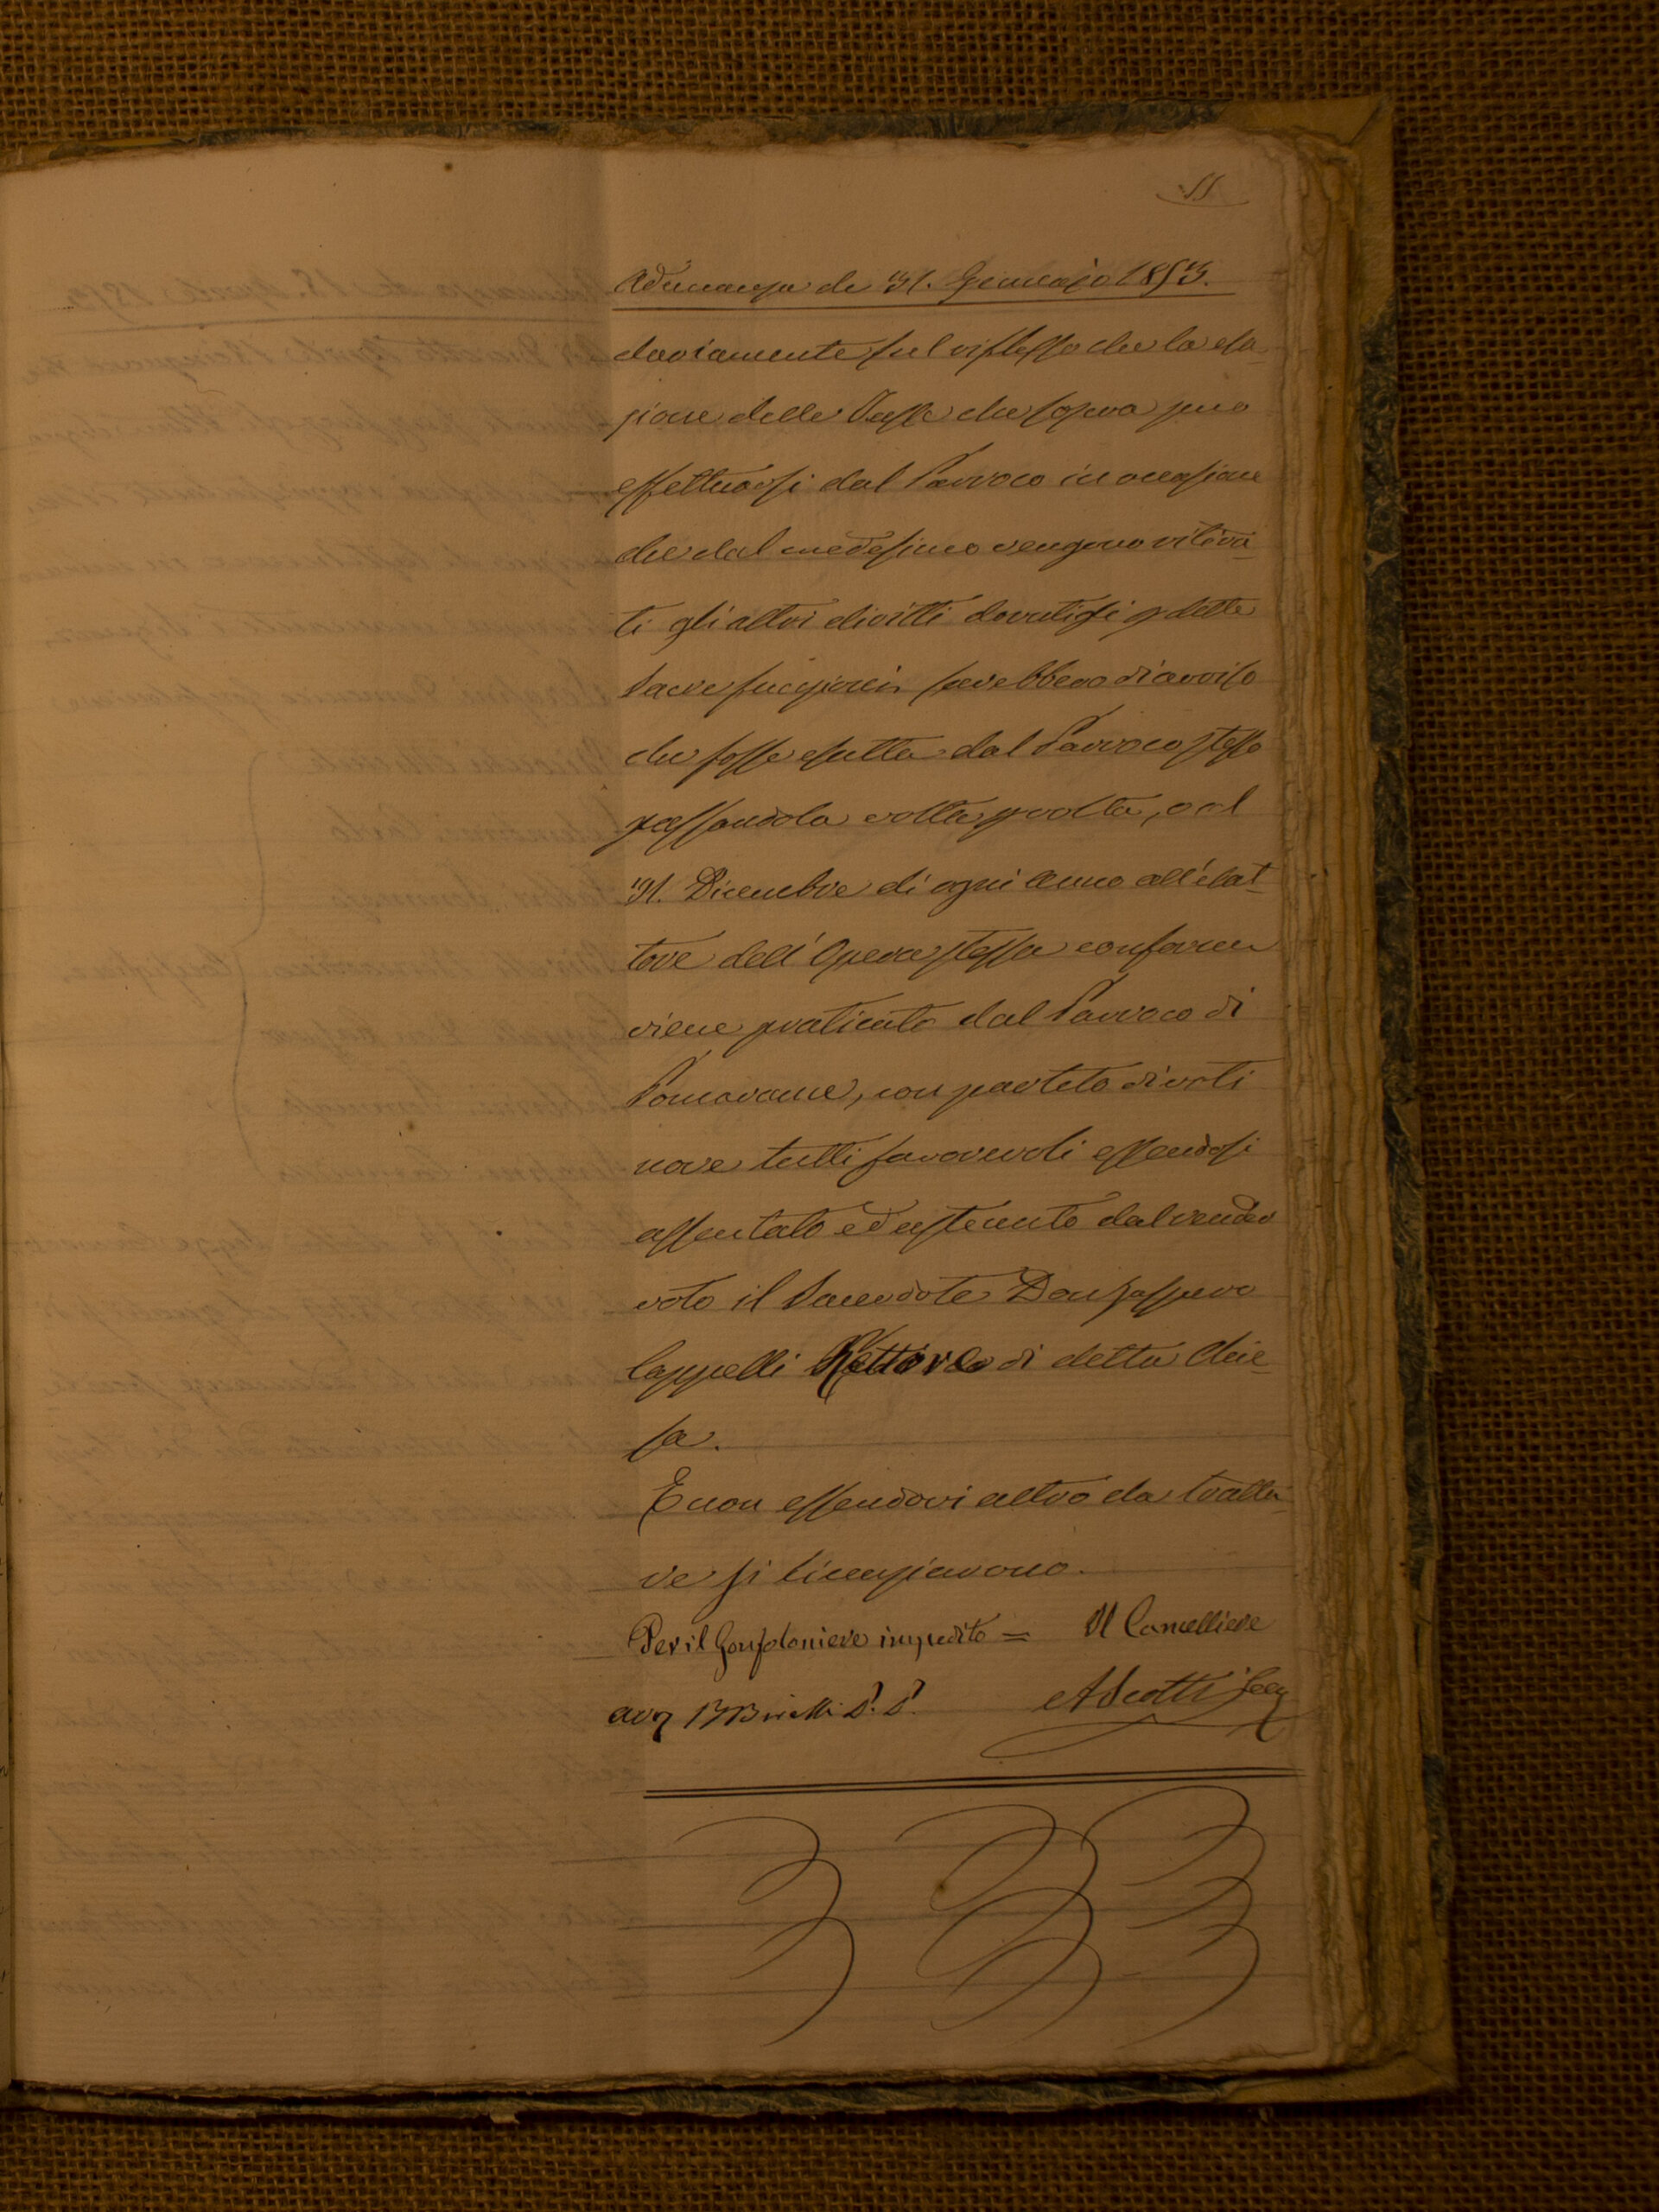 55
Adunanza de 31. Gennajo 1853.
daviamente sul riflesso che la esa-
zione delle Tasse che sopra può
effettuarsi dal Parroco in occasione
che dal medesimo vengono ritira-
ti gli altri diritti dovutigli p dette
Sacre funzioni, sarebbero di avviso
che fosse esatta dal Parroco stesso
passandola volta p volta, o al
31. Dicembre di ogni Anno all'esat-
tore dell'Opera stessa conforme
viene praticato dal Parroco di
Pomarance, con partito di voti
nove tutti favorevoli essendosi
assentato ed astenuto dal render
voto il Sacerdote Don Gasparo
Cappelli Rettore di detta Chie-
sa.
E non essendovi altro da tratta-
re si licenziarono.
Per il Gonfaloniere impedito = Il Cancelliere
A Scotti